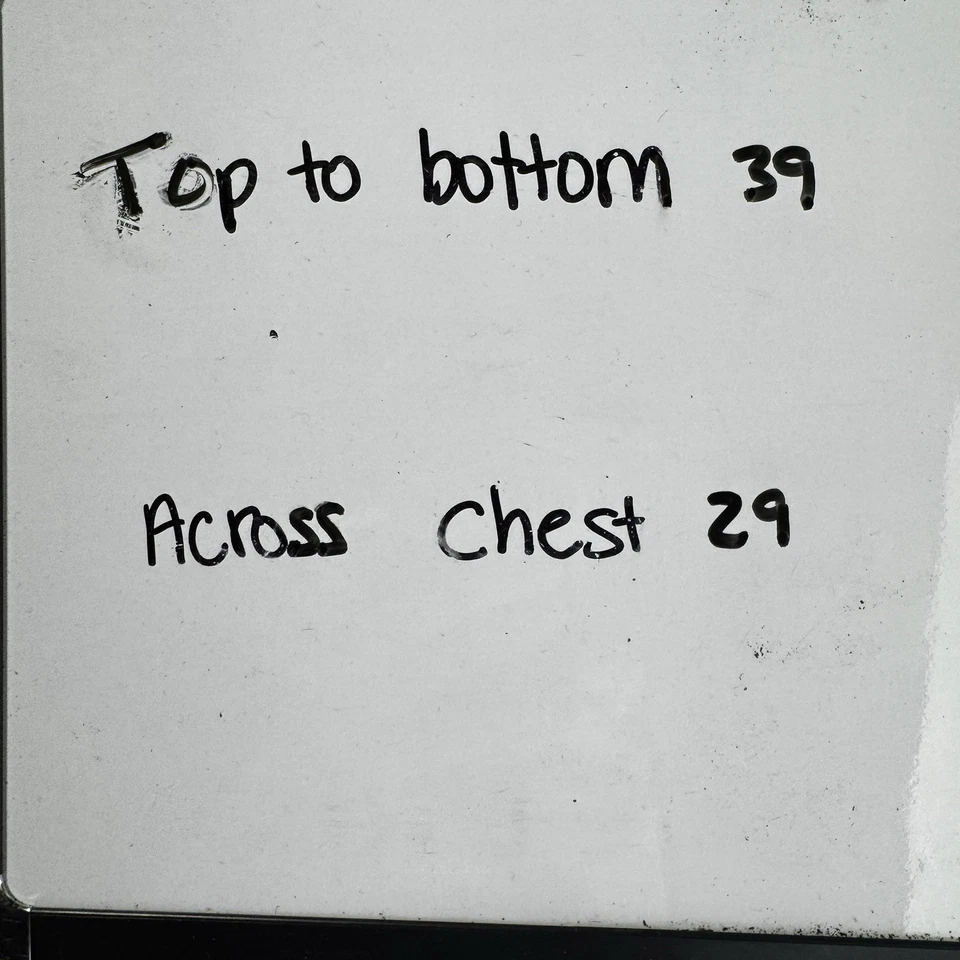 Top to bottom 39
Across Chest 29